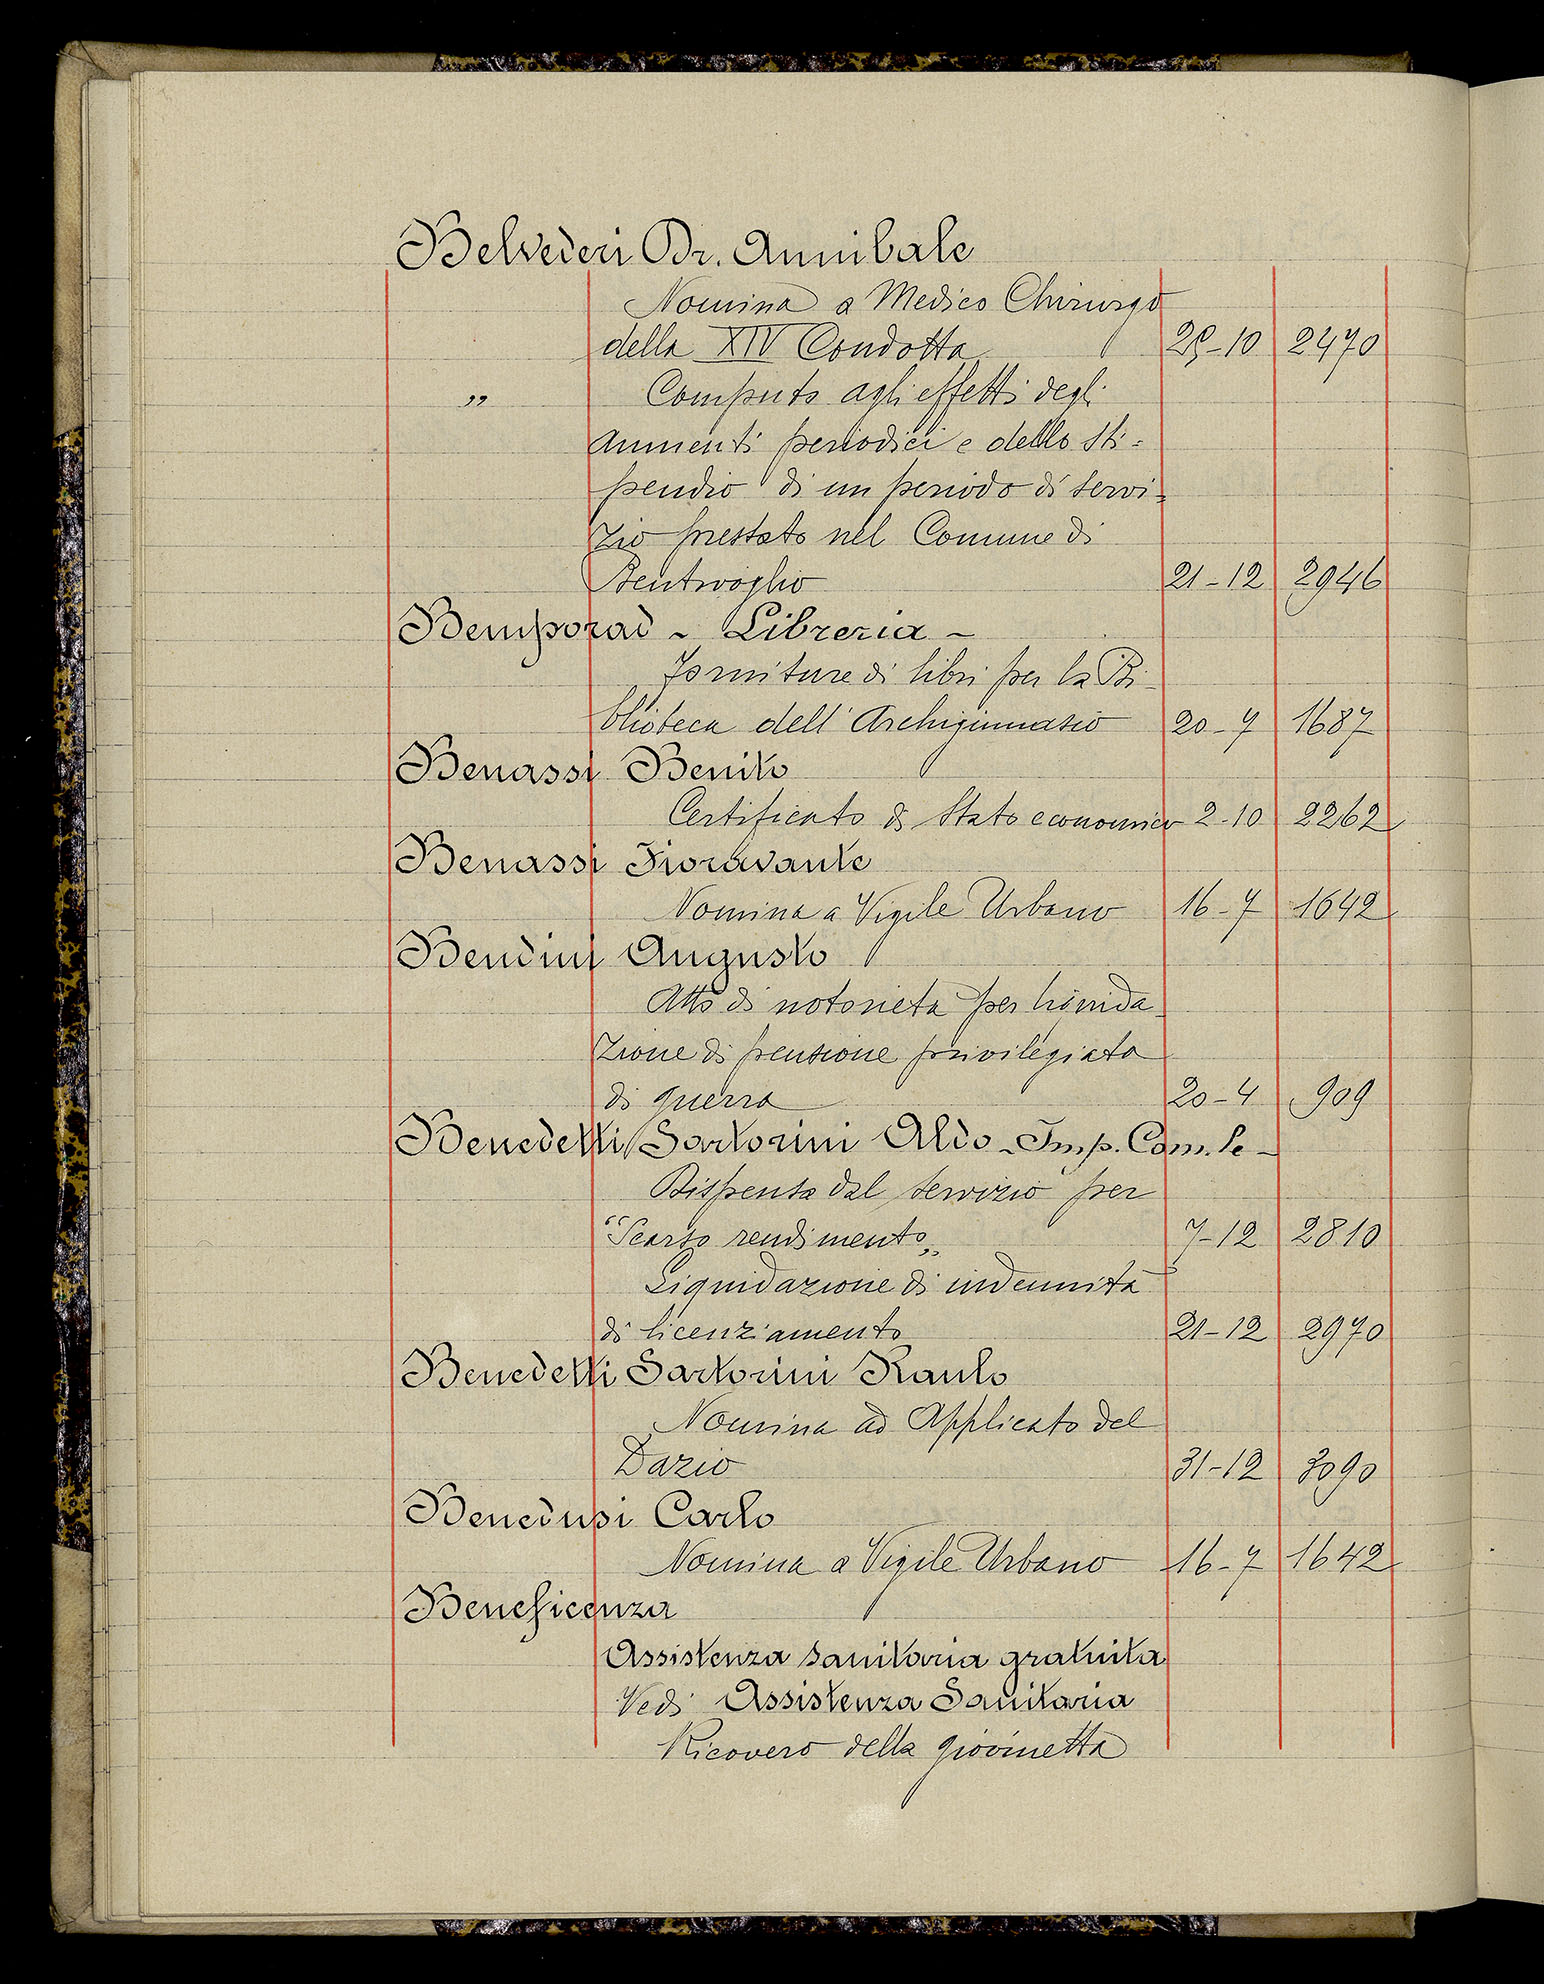 Belvederi Dr. Annibale
Nomina a Medico Chirurgo
della XIV Condotta 29-10 2470
„ Computo agli effetti degli
aumenti periodici e dello sti=
pendio di un periodo di servi=
zio prestato nel Comune di
Bentivoglio 21-12 2946
Bemporad - Libreria -
Forniture di libri per la Bi-
blioteca dell'Archiginnasio 20-7 1687
Benassi Benito
Certificato di Stato economico 2-10 2262
Benassi Fioravante
Nomina a Vigile Urbano 16-7 1642
Bendini Augusto
Atto di notorietà per liquida-
zione di pensione privilegiata
di guerra 20-4 909
Benedetti Sartorini Aldo - Imp. Com.le -
Dispensa dal servizio per
"Scarso rendimento„ 7-12 2810
Liquidazione di indennità
di licenziamento 21-12 2970
Benedetti Sartorini Raulo
Nomina ad Applicato del
Dazio 31-12 3090
Benedusi Carlo
Nomina a Vigile Urbano 16-7 1642
Beneficenza
Assistenza sanitaria gratuita
Vedi Assistenza Sanitaria
Ricovero della giovinetta